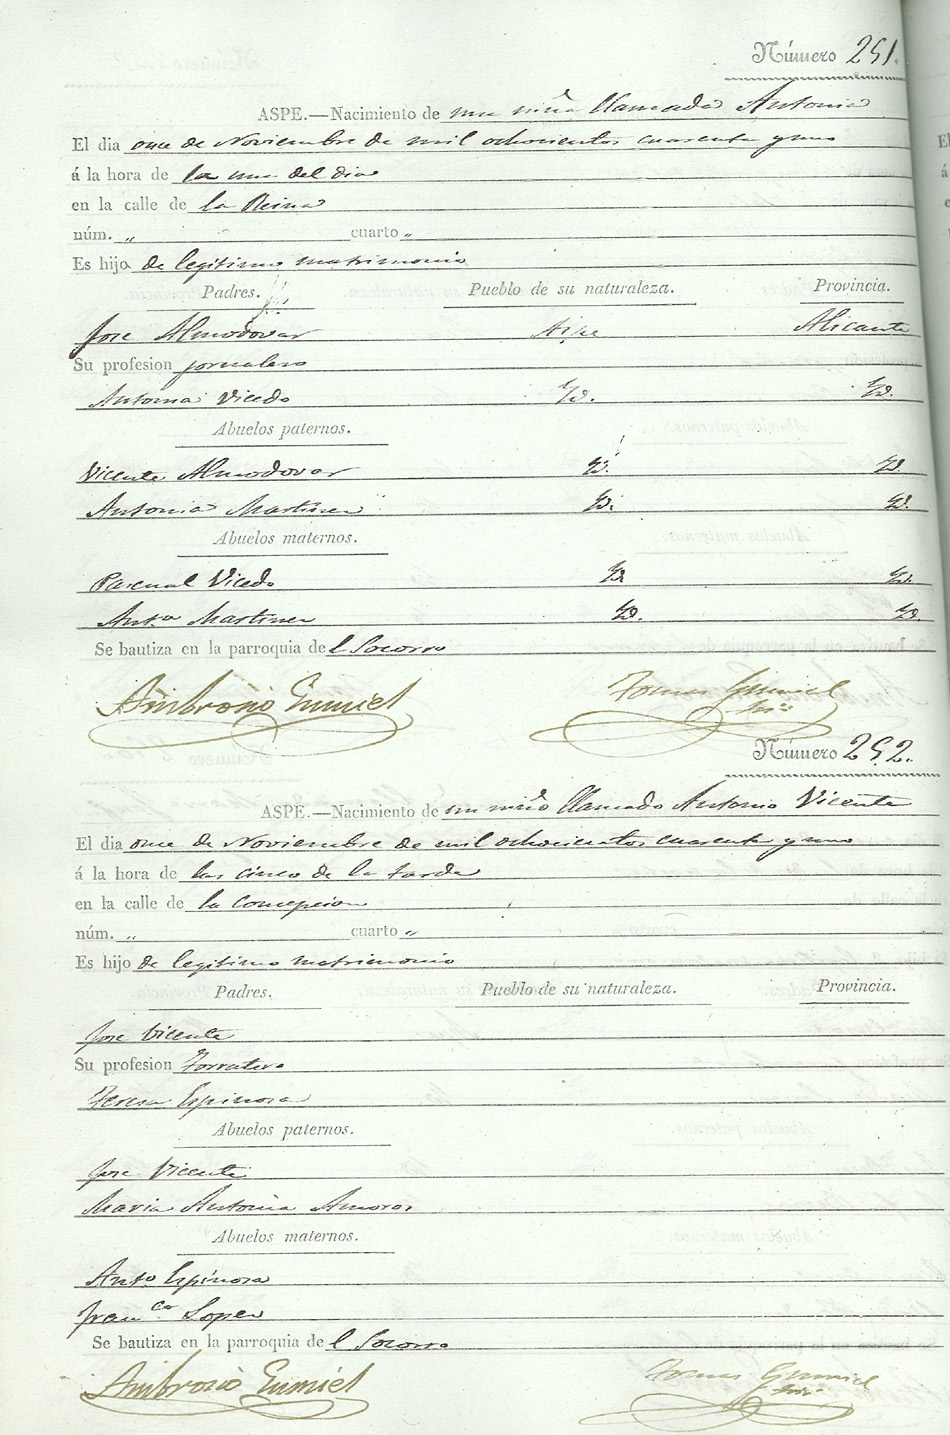 Número 251.
ASPE.—Nacimiento de una niña llamada Antonia
El dia once de Noviembre de mil ochocientos cuarenta y uno
á la hora de la una del dia
en la calle de la Reina
núm. „ cuarto „
Es hija de legitimo matrimonio
Padres. Pueblo de su naturaleza. Provincia.
Jose Almodovar Aspe Alicante
Su profesion jornalero
Antonia Vicedo Yd. Yd.
Abuelos paternos.
Vicente Almodovar Yd. Yd.
Antonia Martinez Yd. Yd.
Abuelos maternos.
Pascual Vicedo Yd Yd.
Ant.a Martinez Yd. Yd.
Se bautiza en la parroquia del Socorro
Ambrosio Gumiel Tomas Gumiel
Número 252.
ASPE.—Nacimiento de un niño llamado Antonio Vicente
El dia once de Noviembre de mil ochocientos cuarenta y uno
á la hora de las cinco de la tarde
en la calle de la Concepcion
núm. „ cuarto „
Es hijo de legitimo matrimonio
Padres. Pueblo de su naturaleza. Provincia.
Jose Vicente
Su profesion
Teresa Espinosa
Abuelos paternos.
Jose Vicente
Maria Antonia Amoros
Abuelos maternos.
Ant.o Espinosa
Fran.ca Lopez
Se bautiza en la parroquia del Socorro
Ambrosio Gumiel Tomas Gumiel